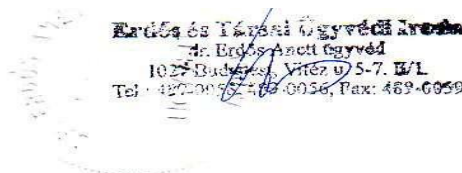 Erdős és Társai Ügyvédi Iroda
dr. Erdős Anett ügyvéd
1027 Budapest, Vitéz u. 5-7. B/1.
Tel.: 489-0055, 489-0056, Fax: 489-0059